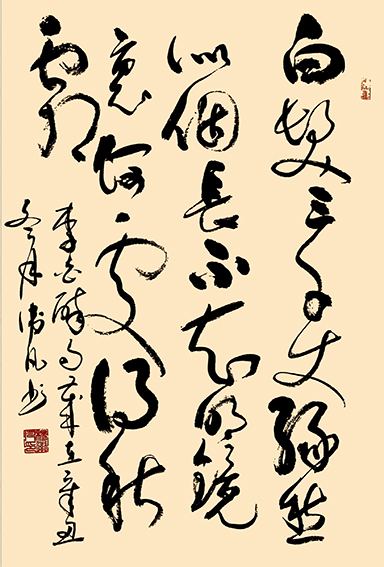 白髮三千丈緣愁
似個長不知明鏡
裏何處得秋
霜
李白句歲在辛丑
冬月凡书